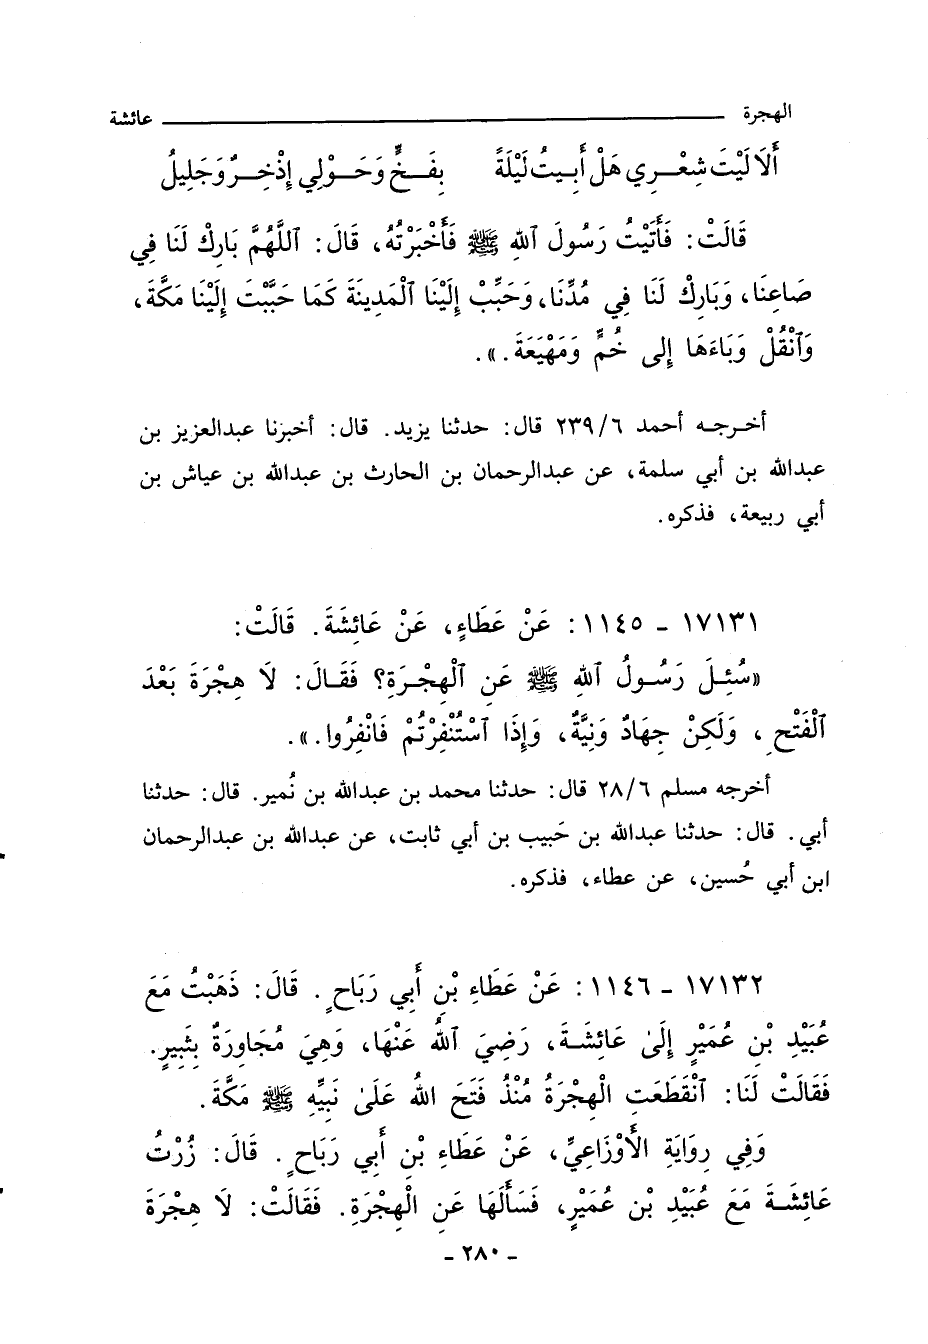 الهجرة عائشة
أَلَا لَيْتَ شِعْرِي هَلْ أَبِيتُ لَيْلَةً بِفَخٍّ وَحَوْلِي إِذْخِرٌ وَجَلِيلُ
قَالَتْ: فَأَتَيْتُ رَسُولَ اللهِ ﷺ فَأَخْبَرْتُهُ، قَالَ: اللَّهُمَّ بَارِكْ لَنَا فِي
صَاعِنَا، وَبَارِكْ لَنَا فِي مُدِّنَا، وَحَبِّبْ إِلَيْنَا الْمَدِينَةَ كَمَا حَبَّبْتَ إِلَيْنَا مَكَّةَ،
وَٱنْقُلْ وَبَاءَهَا إِلى خُمٍّ وَمَهْيَعَةَ.».
أخرجه أحمد ٦/٢٣٩ قال: حدثنا يزيد. قال: أخبرنا عبدالعزيز بن
عبدالله بن أبي سلمة، عن عبدالرحمان بن الحارث بن عبدالله بن عياش بن
أبي ربيعة، فذكره.
١٧١٣١ - ١١٤٥: عَنْ عَطَاءٍ، عَنْ عَائِشَةَ. قَالَتْ:
«سُئِلَ رَسُولُ اللهِ ﷺ عَنِ الْهِجْرَةِ؟ فَقَالَ: لَا هِجْرَةَ بَعْدَ
الْفَتْحِ، وَلَكِنْ جِهَادٌ وَنِيَّةٌ، وَإِذَا ٱسْتُنْفِرْتُمْ فَانْفِرُوا.».
أخرجه مسلم ٦/٢٨ قال: حدثنا محمد بن عبدالله بن نُمير. قال: حدثنا
أبي. قال: حدثنا عبدالله بن حَبيب بن أبي ثابت، عن عبدالله بن عبدالرحمان
ابن أبي حُسين، عن عطاء، فذكره.
١٧١٣٢ - ١١٤٦: عَنْ عَطَاءِ بْنِ أَبِي رَبَاحٍ. قَالَ: ذَهَبْتُ مَعَ
عُبَيْدِ بْنِ عُمَيْرٍ إِلَىٰ عَائِشَةَ، رَضِيَ اللهُ عَنْهَا، وَهِيَ مُجَاوِرَةٌ بِثَبِيرٍ.
فَقَالَتْ لَنَا: ٱنْقَطَعَتِ الْهِجْرَةُ مُنْذُ فَتَحَ اللهُ عَلَىٰ نَبِيِّهِ ﷺ مَكَّةَ.
وَفِي رِوَايَةِ الْأَوْزَاعِيِّ، عَنْ عَطَاءِ بْنِ أَبِي رَبَاحٍ. قَالَ: زُرْتُ
عَائِشَةَ مَعَ عُبَيْدِ بْنِ عُمَيْرٍ، فَسَأَلَهَا عَنِ الْهِجْرَةِ. فَقَالَتْ: لَا هِجْرَةَ
- ٢٨٠ -